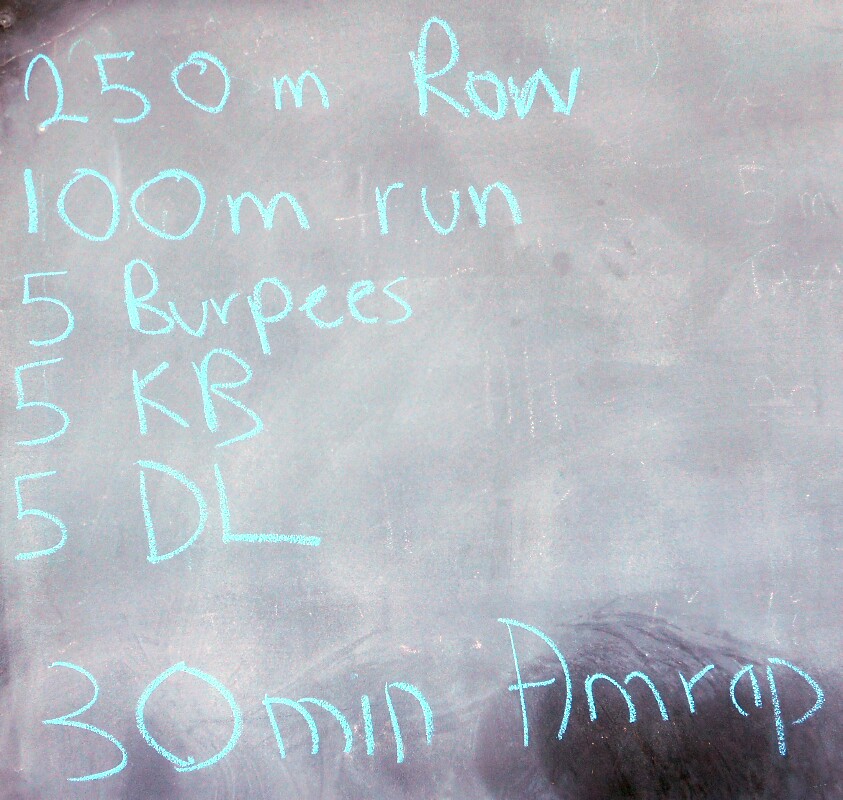 250 m Row
100m run
5 Burpees
5 KB
5 DL
30min Amrap